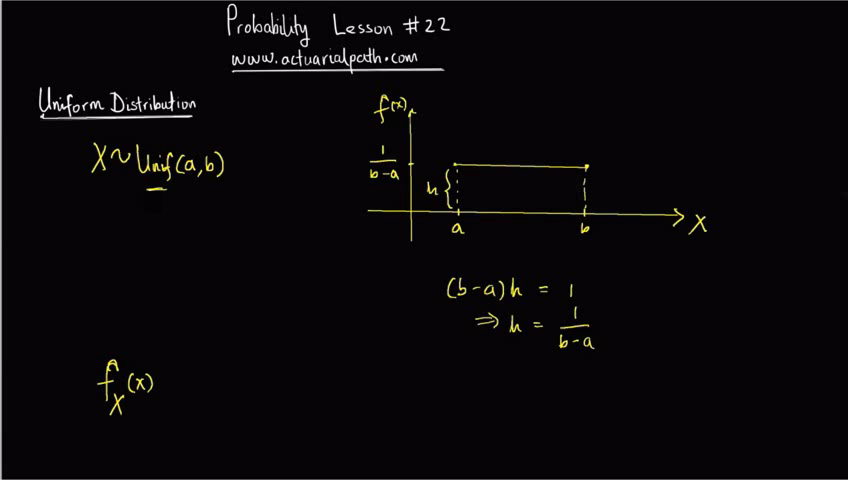 Probability Lesson #22
www.actuarialpath.com
Uniform Distribution
X ~ Unif(a,b)
f(x)
1/(b-a)
h {
a
b
X
(b-a)h = 1
⇒ h = 1/(b-a)
f_X(x)